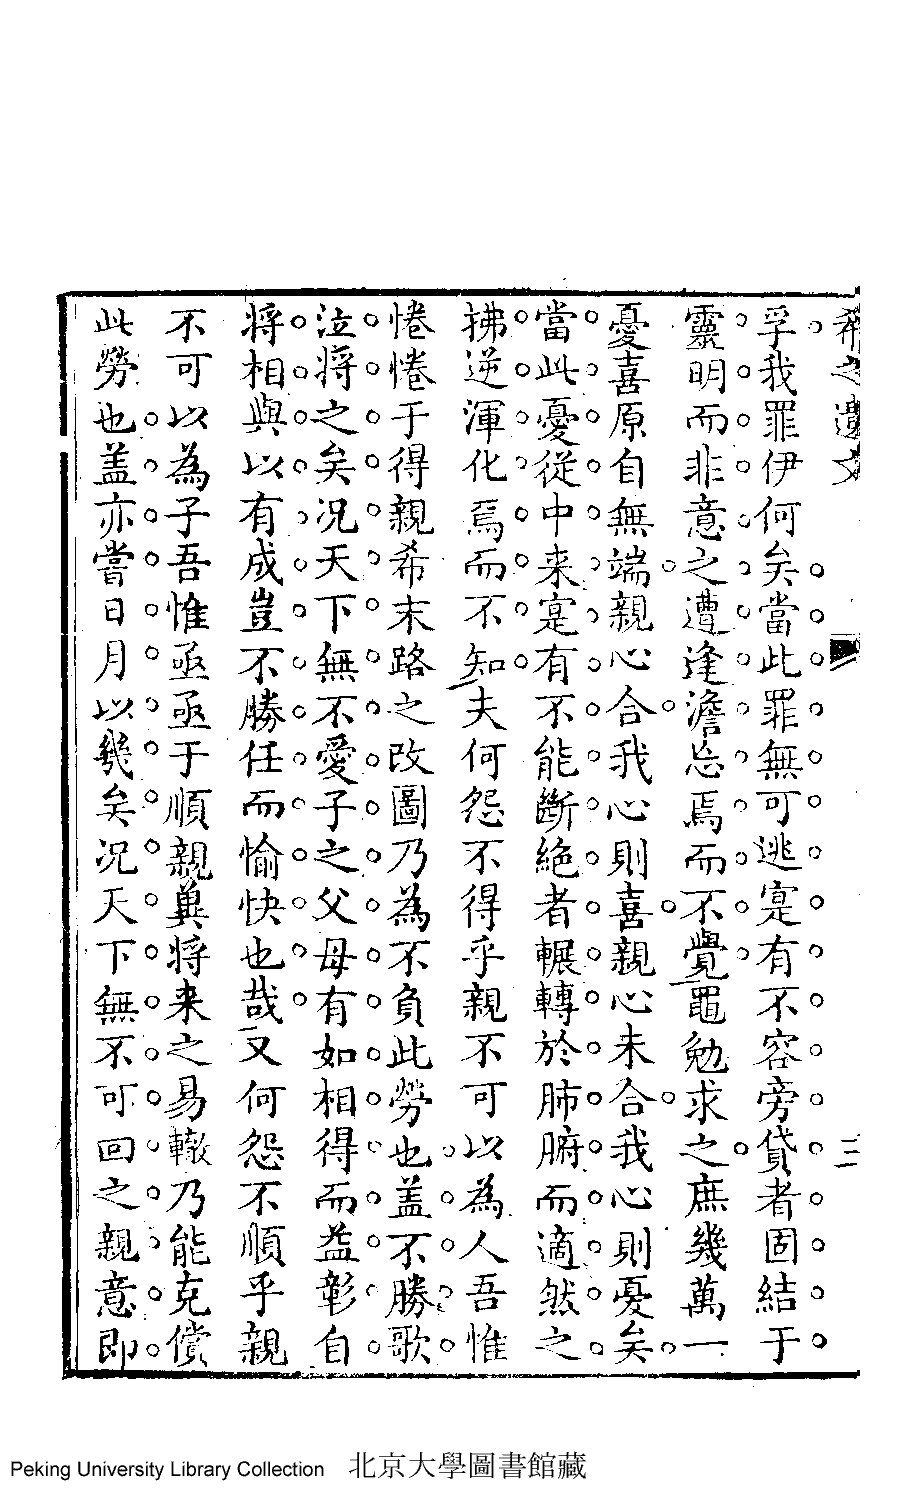 希之遺文
三
孚我罪伊何矣當此罪無可逃寔有不容旁貸者固結于
靈明而非意之遭逢澹忘焉而不覺黽勉求之庶幾萬一
憂喜原自無端親心合我心則喜親心未合我心則憂矣
當此憂從中来寔有不能斷絶者輾轉於肺腑而適然之
拂逆渾化焉而不知夫何怨不得乎親不可以為人吾惟
惓惓于得親希末路之改圖乃為不負此勞也盖不勝歌
泣將之矣况天下無不愛子之父母有如相得而益彰自
將相與以有成豈不勝任而愉快也哉又何怨不順乎親
不可以為子吾惟亟亟于順親冀將来之易轍乃能克償
此勞也盖亦嘗日月以幾矣况天下無不可回之親意即
Peking University Library Collection 北京大學圖書館藏